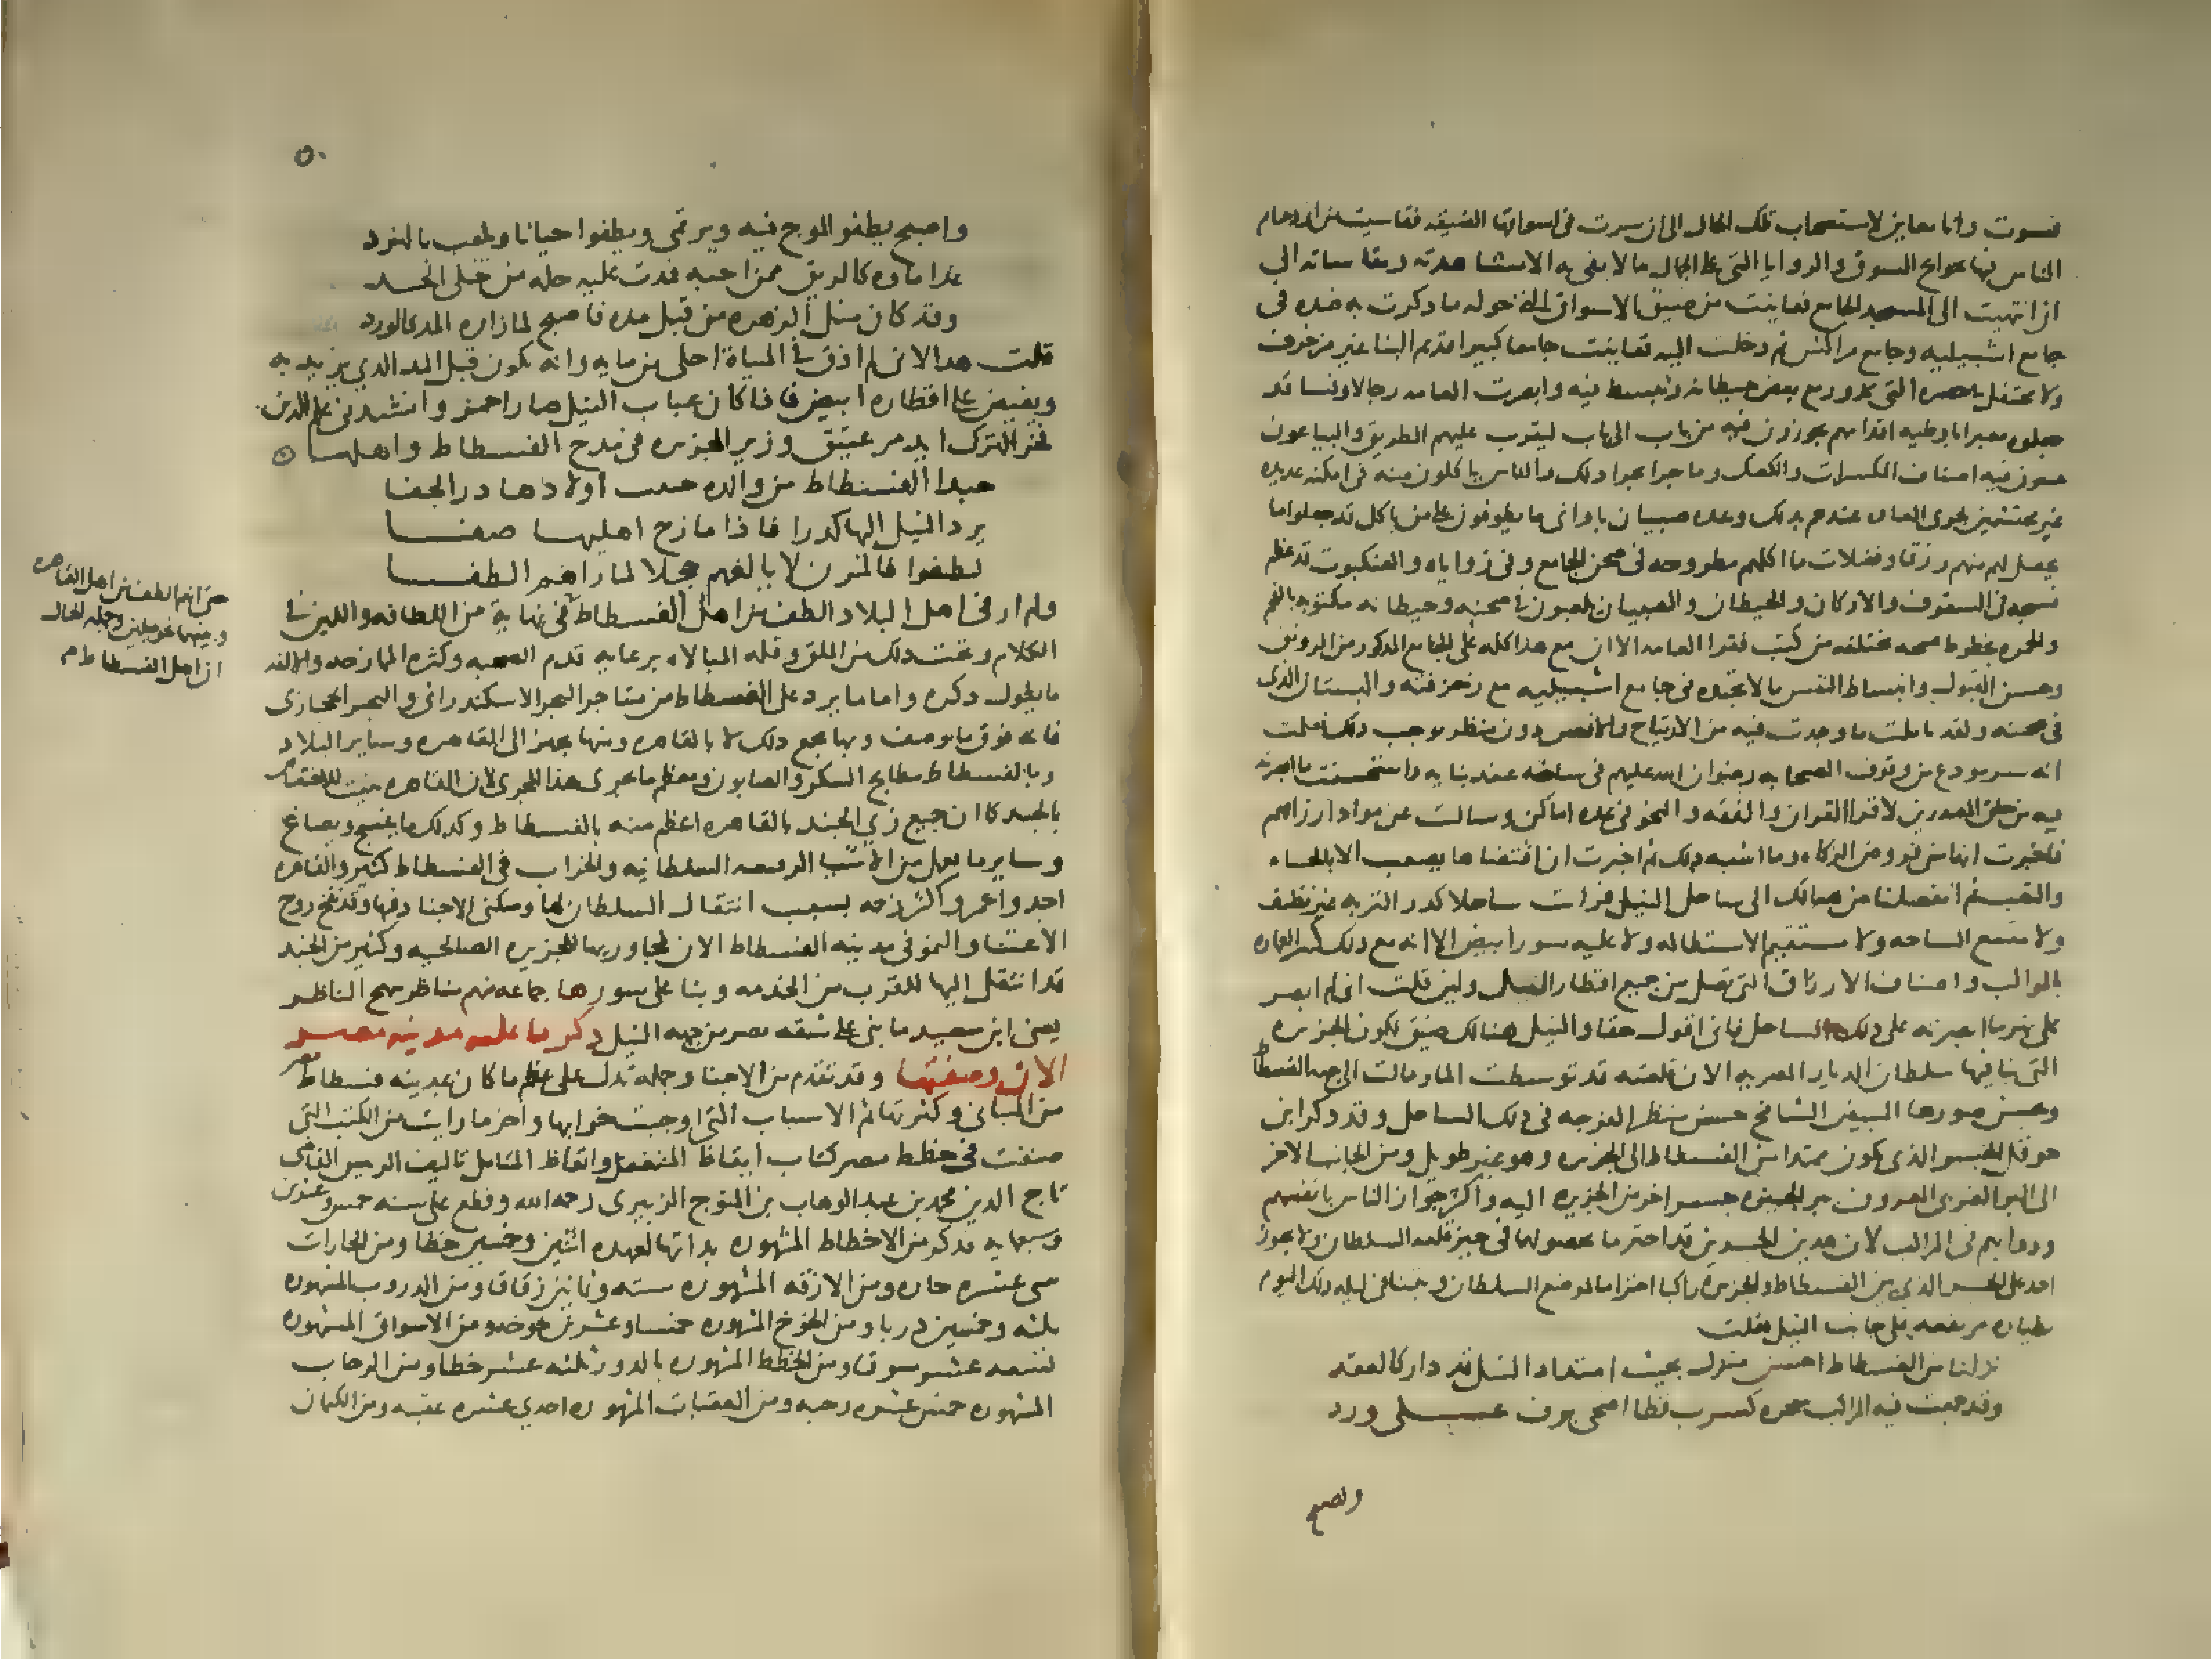 فسرت وانا معاين لاستصحاب تلك الحال الى ان سرت فى اسواقها الضيقه فقاسيت من ازدحام
الناس فيها بحوايج السوق والروايا التى على الجمال ما لا يفى به الا مشاهدته ومقاساته الى
ان انتهيت الى المسجد الجامع فعاينت من ضيق الاسواق التى حوله ما ذكرت به ضده فى
جامع اشبيليه وجامع مراكش ثم دخلت اليه فعاينت جامعا كبيرا قديم البنا غير مزخرف
ولا محتفل فى حصره التى تدور مع بعض حيطانه وتبسط فيه وابصرت العامه رجالا ونسا قد
جعلوه معبرا باوطيه اقدامهم يجوزون فيه من باب الى باب ليقرب عليهم الطريق والبياعون
يبيعون فيه اصناف المكسرات والكعك وما جرا مجرا ذلك والناس ياكلون منه فى امكنه عديده
غير محتشمين لجرى العاده عندهم بذلك وعده صبيان باوانى ما يطوفون على من ياكل قد جعلوا ما
يحصل لهم منهم رزقا وفضلات ما اكلهم مطروحه فى صحن الجامع وفى زواياه والعنكبوت قد عظم
نسجه فى السقوف والاركان والحيطان والصبيان يلعبون فى صحنه وحيطانه مكتوبه بالفحم
والحمره بخطوط قبيحه مختلفه من كتب فقرا العامه الا ان مع هذا كله على الجامع المذكور من الرونق
وحسن القبول وانبساط النفس ما لا تجده فى جامع اشبيليه مع زخرفته والبستان الذى
فى صحنه ولقد تاملت ما وجدت فيه من الارتياح والانس دون منظر يوجب ذلك فعلمت
انه سر مودع من وقوف الصحابه رضوان الله عليهم فى ساحته عند بنايه واستحسنت ما ابصرته
فيه من حلق المصدرين لاقرا القران والفقه والنحو فى عده اماكن وسالت عن مواد ارزاقهم
فاخبرت انها من فروض الزكاه وما اشبه ذلك ثم اخبرت ان اقتضاها يصعب الا بالجاه
والتعب ثم انفصلنا من هنالك الى ساحل النيل فرايت ساحلا كدر التربه غير نظيف
ولا متسع الساحه ولا مستقيم الاستطاله ولا عليه سور ابيض الا انه مع ذلك كثير العماره
بالمراكب واصناف الارزاق التى تصل من جميع اقطار النيل ولين قلت انى لم ابصر
على نهر ما ابصرته على ذلك الساحل فانى اقول حقا والنيل هنالك ضيق لكون الجزيره
التى بنا فيها سلطان الديار المصريه الان قلعته قد توسطت الما ومالت الى جهه الفسطاط
وبحسن سورها المبيض الشامخ حسن منظر الفرجه فى ذلك الساحل وقد ذكر ابن
حوقل الجسر الذى يكون ممتدا من الفسطاط الى الجزيره وهو غير طويل ومن الجانب الاخر
الى البر الغربى المعروف ببر الجيزه جسر اخر من الجزيره اليه واكثر جواز الناس بانفسهم
ودوابهم فى المراكب لان هذين الجسرين قد احترما بحصولهما فى حيز قلعه السلطان ولا يجوز
احد على الجسر الذى بين الفسطاط والجزيره راكبا احتراما لموضع السلطان وبتنا فى ليله ذلك اليوم
بطياره مرتفعه على جانب النيل فقلت
نزلنا من الفسطاط احسن منزل بحيث امتداد النيل قد دار كالعقد
وقد جمعت فيه المراكب سحره كسرب قطا اضحى يرف على ورد
واصبح
٥٠
واصبح يطفو الموج فيه ويرتمى ويطفوا حيانا ويلعب بالنرد
غدا ماوه كالريق ممن احبه فمدت عليه حله من حلى الخد
وقد كان مثل الزهر من قبل مده فاصبح لما زاره المد كالورد
قلت هذا لانى لم اذق فى المياه احلى من مايه وانه يكون قبل المد الذى يزيد به
ويفيض على اقطاره ابيض فاذا كان عباب النيل صار احمر وانشدنى علم الدين
فخر الترك ايدمر عتيق وزير الجزيره فى مدح الفسطاط واهلها ۝
حبذا الفسطاط من والده جنبت اولادها در الجفا
يرد النيل اليها كدرا فاذا مازج اهليها صفا
لطفوا فالمزن لا يالفهم خجلا لما راهم الطفا
ولم ار فى اهل البلاد الطف من اهل الفسطاط فى نهاية من اللطافه واللين فى
حتى انهم الطف من اهل القاهره
وبينهما نحو ميلين وجمله الحال
ان اهل الفسطاط صح
الكلام وتحت ذلك من الملق وقله المبالاه برعايه قدم الصحبه وكثره الممازجه والالفه
ما يطول ذكره واما ما يرد على الفسطاط من متاجر البحر الاسكندرانى والبحر الحجازى
فانه فوق ما يوصف وبها مجمع ذلك لا بالقاهره ومنها يجهز الى القاهره وساير البلاد
وبالفسطاط مطابخ السكر والصابون ومعظم ما يجرى هذا المجرى لان القاهره بنيت للاختصاص
بالجند كما ان جميع زى الجند بالقاهره اعظم منه بالفسطاط وكذلك ما ينسج ويصاغ
وساير ما يعمل من الاشيا الرفيعه السلطانيه والخراب فى الفسطاط كثير والقاهره
اجد واعمر واكثر زحمه بسبب انتقال السلطان لها وسكنى الاجناد فيها وقد نفخ روح
الاعتنا والنمو فى مدينه الفسطاط الان لمجاورتها للجزيره الصالحيه وكثير من الجند
قد انتقل اليها للقرب من الخدمه وبنا على سورها جماعه منهم مناظر تبهج الناظر
يعنى ابن سعيد ما بنى على شقه مصر من جهه النيل ذكر ما عليه مدينه مصر
الان وصفتها وقد تقدم من الاخبار جمله تدل على عظم ما كان بمدينه فسطاط مصر
من المبانى وكثرتها ثم الاسباب التى اوجبت خرابها واخر ما رايت من الكتب التى
صنفت فى خطط مصر كتاب ايقاظ المتغفل واتعاظ المتامل تاليف الرييس القاضى
تاج الدين محمد بن عبد الوهاب بن المتوج الزبيرى رحمه الله وقطع على سنه خمس وعشرين
وسبعمايه فذكر من الاخطاط المشهوره بذاتها لعهده اثنين وخمسين خطا ومن الحارات
اثنتى عشره حاره ومن الازقه المشهوره سته وثمانين زقاقا ومن الدروب المشهوره
ثلثه وخمسين دربا ومن الخوخ المشهوره خمسا وعشرين خوخه ومن الاسواق المشهوره
تسعه عشر سوقا ومن الخطط المشهوره بالدور ثلثه عشر خطا ومن الرحاب
المشهوره خمس عشره رحبه ومن العقبات المشهوره احدى عشره عقبه ومن الكيمان